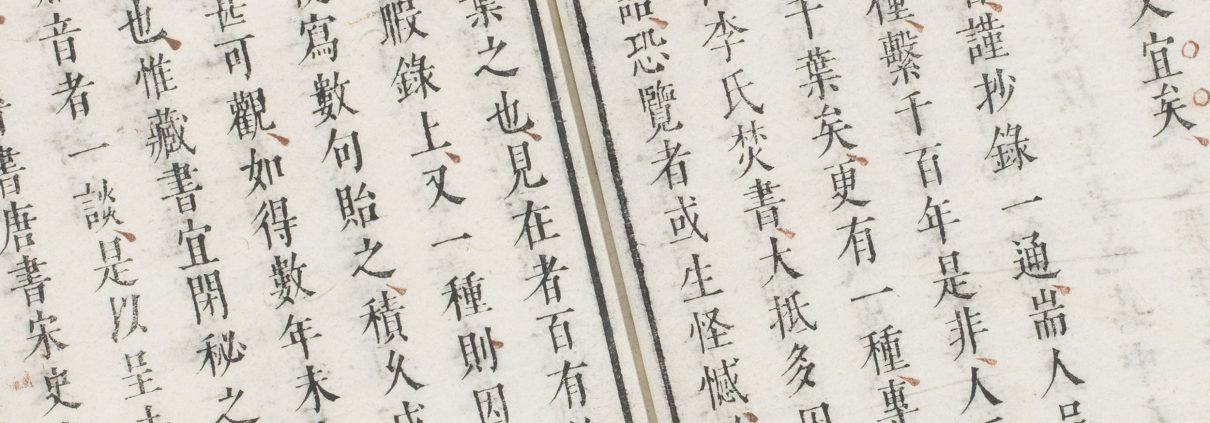 宜矣
謹抄錄一通耑人
種繫千百年是非人
千葉矣更有一種專
李氏焚書大抵多因
恐覽者或生怪憾
葉之也見在者百有
暇錄上又一種則因
寫數句貽之積久成
甚可觀如得數年未
也惟藏書宜閉秘之
音者一談是以呈
書唐書宋史